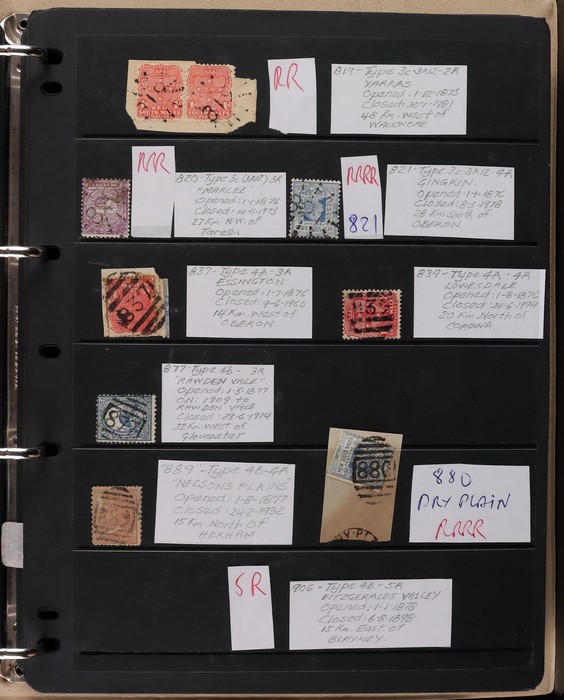 RR
819 - Type 3c-3R12-2R
YARRAS
Opened: 1-12-1875
Closed: 30-1-1981
48 Km. West of
WAUCHOPE
SOUTH WALES
RRR
820-Type 3c 3R
"MARLEE"
Opened: 1-1-1876
Closed: 14-11-1973
27 Km N.W. of
Taree
RRRR
821
821 - Type 3c-3R12-4R
GINGKIN
Opened: 1-1-1876
Closed: 8-3-1978
28 Km South of
OBERON
837 - Type 4A - 3R
ESSINGTON
Opened: 1-7-1876
Closed: 9-6-1960
14 Km. West of
OBERON
837
839 - Type 4A - 4R
LOWESDALE
Opened: 1-8-1876
Closed: 24-6-1994
20 Km North of
COROWA
877-Type 4B - 3R
"RAWDEN VALE"
Opened: 1-5-1877
ON: 1909 to
RAWDEN VALE
Closed: 29-6-1974
32 Km. West of
Gloucester
"889" - Type 4B-4R
"NELSONS PLAINS"
Opened: 1-8-1877
Closed: 24-2-1932
15 Km. North of
HEXHAM
880
880
DRY PLAIN
RRRR
5R
906 - Type 4B - 5R
FITZGERALDS VALLEY
Opened: 1-1-1878
Closed: 6-8-1898
15 Km. East of
BLAYNEY.